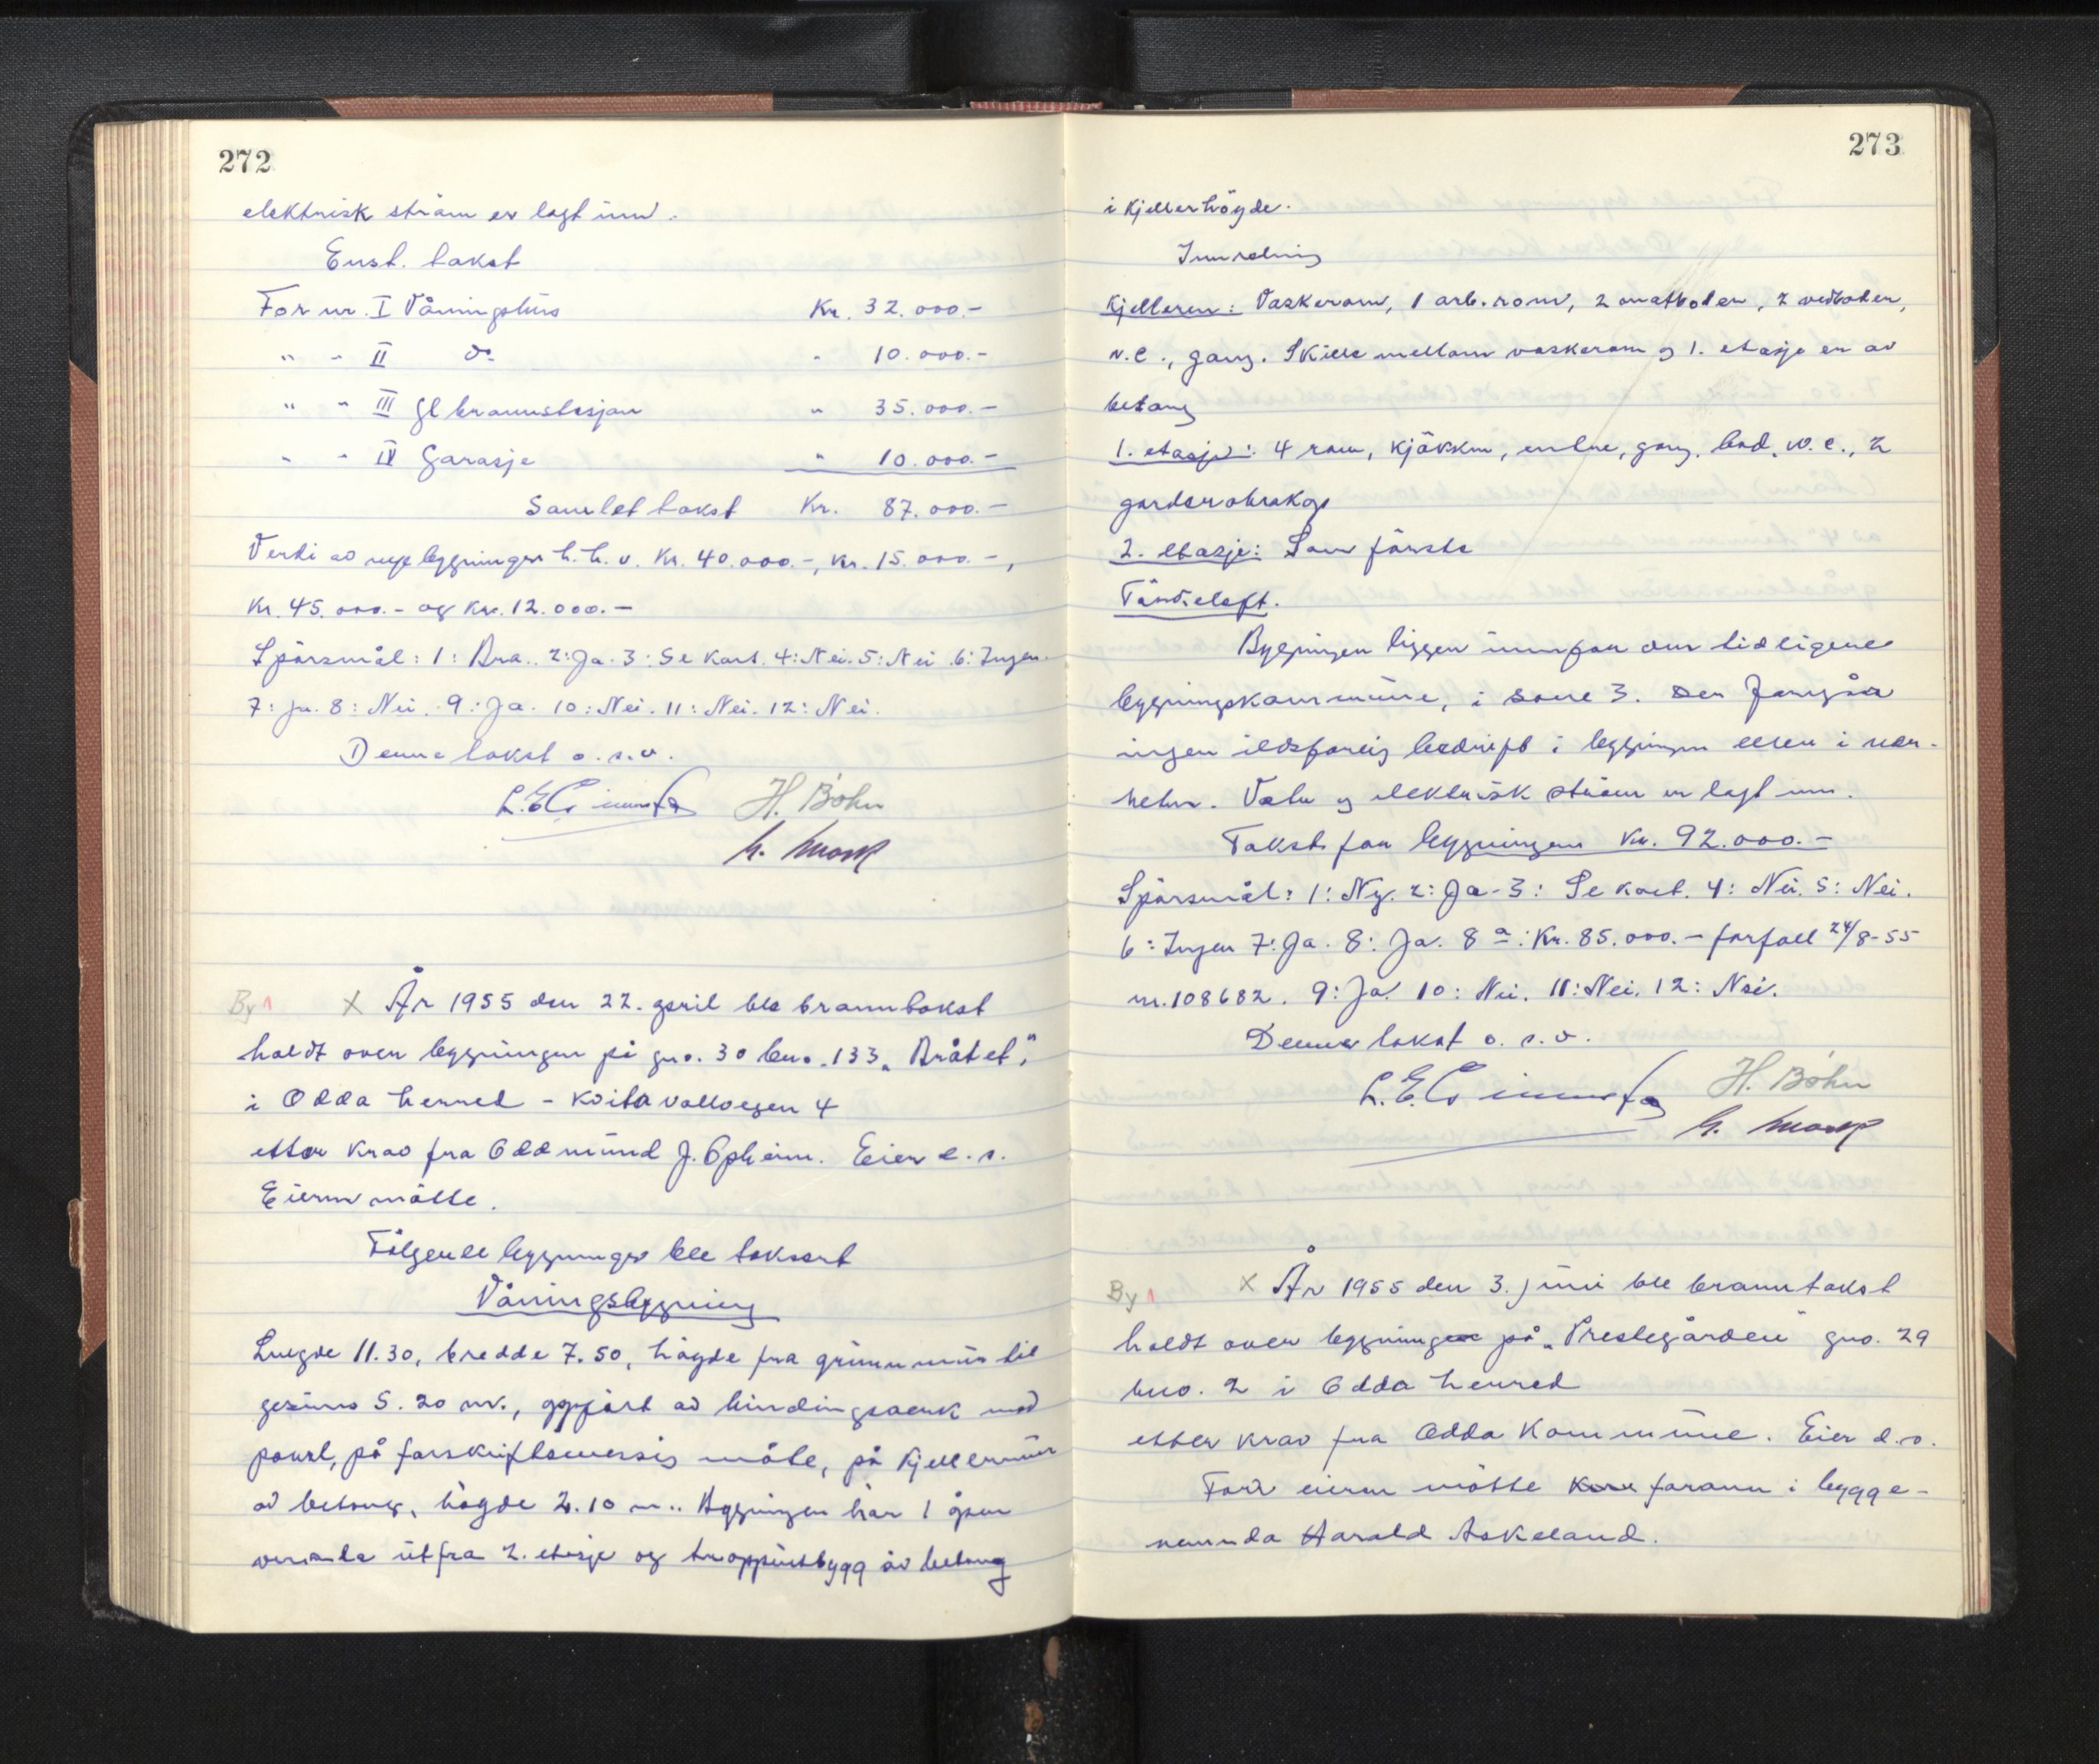 272
elektrisk ström er lagt inn.
Enst. takst
For nr. I Våningshus Kr. 32.000.-
" " II do " 10.000.-
" " III Gl brannstasjon " 35.000.-
" " IV Garasje " 10.000.-
Samlet takst Kr. 87.000.-
Verdi av nye bygninger h.h.v. Kr. 40.000.-, Kr. 15.000.-,
Kr. 45.000.- og Kr. 12.000.-
Spörsmål: 1: Bra. 2: Ja. 3: Se kart. 4: Nei. 5: Nei. 6: Ingen.
7: Ja. 8: Nei. 9: Ja. 10: Nei. 11: Nei. 12: Nei.
Denne takst o.s.v.
H. Böhn
By 1 X År 1955 den 22. april ble branntakst
holdt over bygningen på gno. 30 bno. 133 „Bråtet",
i Odda herred - Kvitavollvegen 4
etter krav fra Oddmund J. Opheim. Eier d.s.
Eieren mötte.
Fölgende bygninger ble taksert
Våningsbygning
Lengde 11.30, bredde 7.50, høgde fra grunnmur til
gesims 5.20 m., oppfört av bindingsverk med
panel, på forskriftsmessig måte, på kjellermur
av betong, högde 2.10 m.. Bygningen har 1 åpen
veranda ut fra 2. etasje og trappeutbygg av betong
273
i kjellerhögde.
Innredning
Kjelleren: Vaskerom, 1 arb.rom, 2 matboder, 2 vedboder,
w.c., gang. Skille mellom vaskerom og 1. etasje er av
betong
1. etasje: 4 rom, kjökken, entre, gang, bad, w.c., 2
garderobeskap
2. etasje: Som förste
Törkeloft.
Bygningen ligger innafor den tidligere
bygningskommune, i sone 3. Der foregår
ingen ildsfarlig bedrift i bygningen eller i nær-
heten. Vatn og elektrisk ström er lagt inn.
Takst for bygningen Kr. 92.000.-
Spörsmål: 1: Ny. 2: Ja. 3: Se kart. 4: Nei. 5: Nei.
6: Ingen 7: Ja. 8: Ja. 8a: Kr. 85.000.- forfall 24/8-55
nr. 108682. 9: Ja. 10: Nei. 11: Nei. 12: Nei.
Denne takst o.s.v.
H. Böhn
By 1 X År 1955 den 3. juni ble branntakst
holdt over bygningene på „Prestegården" gno. 29
bno. 2 i Odda herred
etter krav fra Odda Kommune. Eier d.s.
For eieren mötte formann i bygge-
nemnda Harald Askeland.